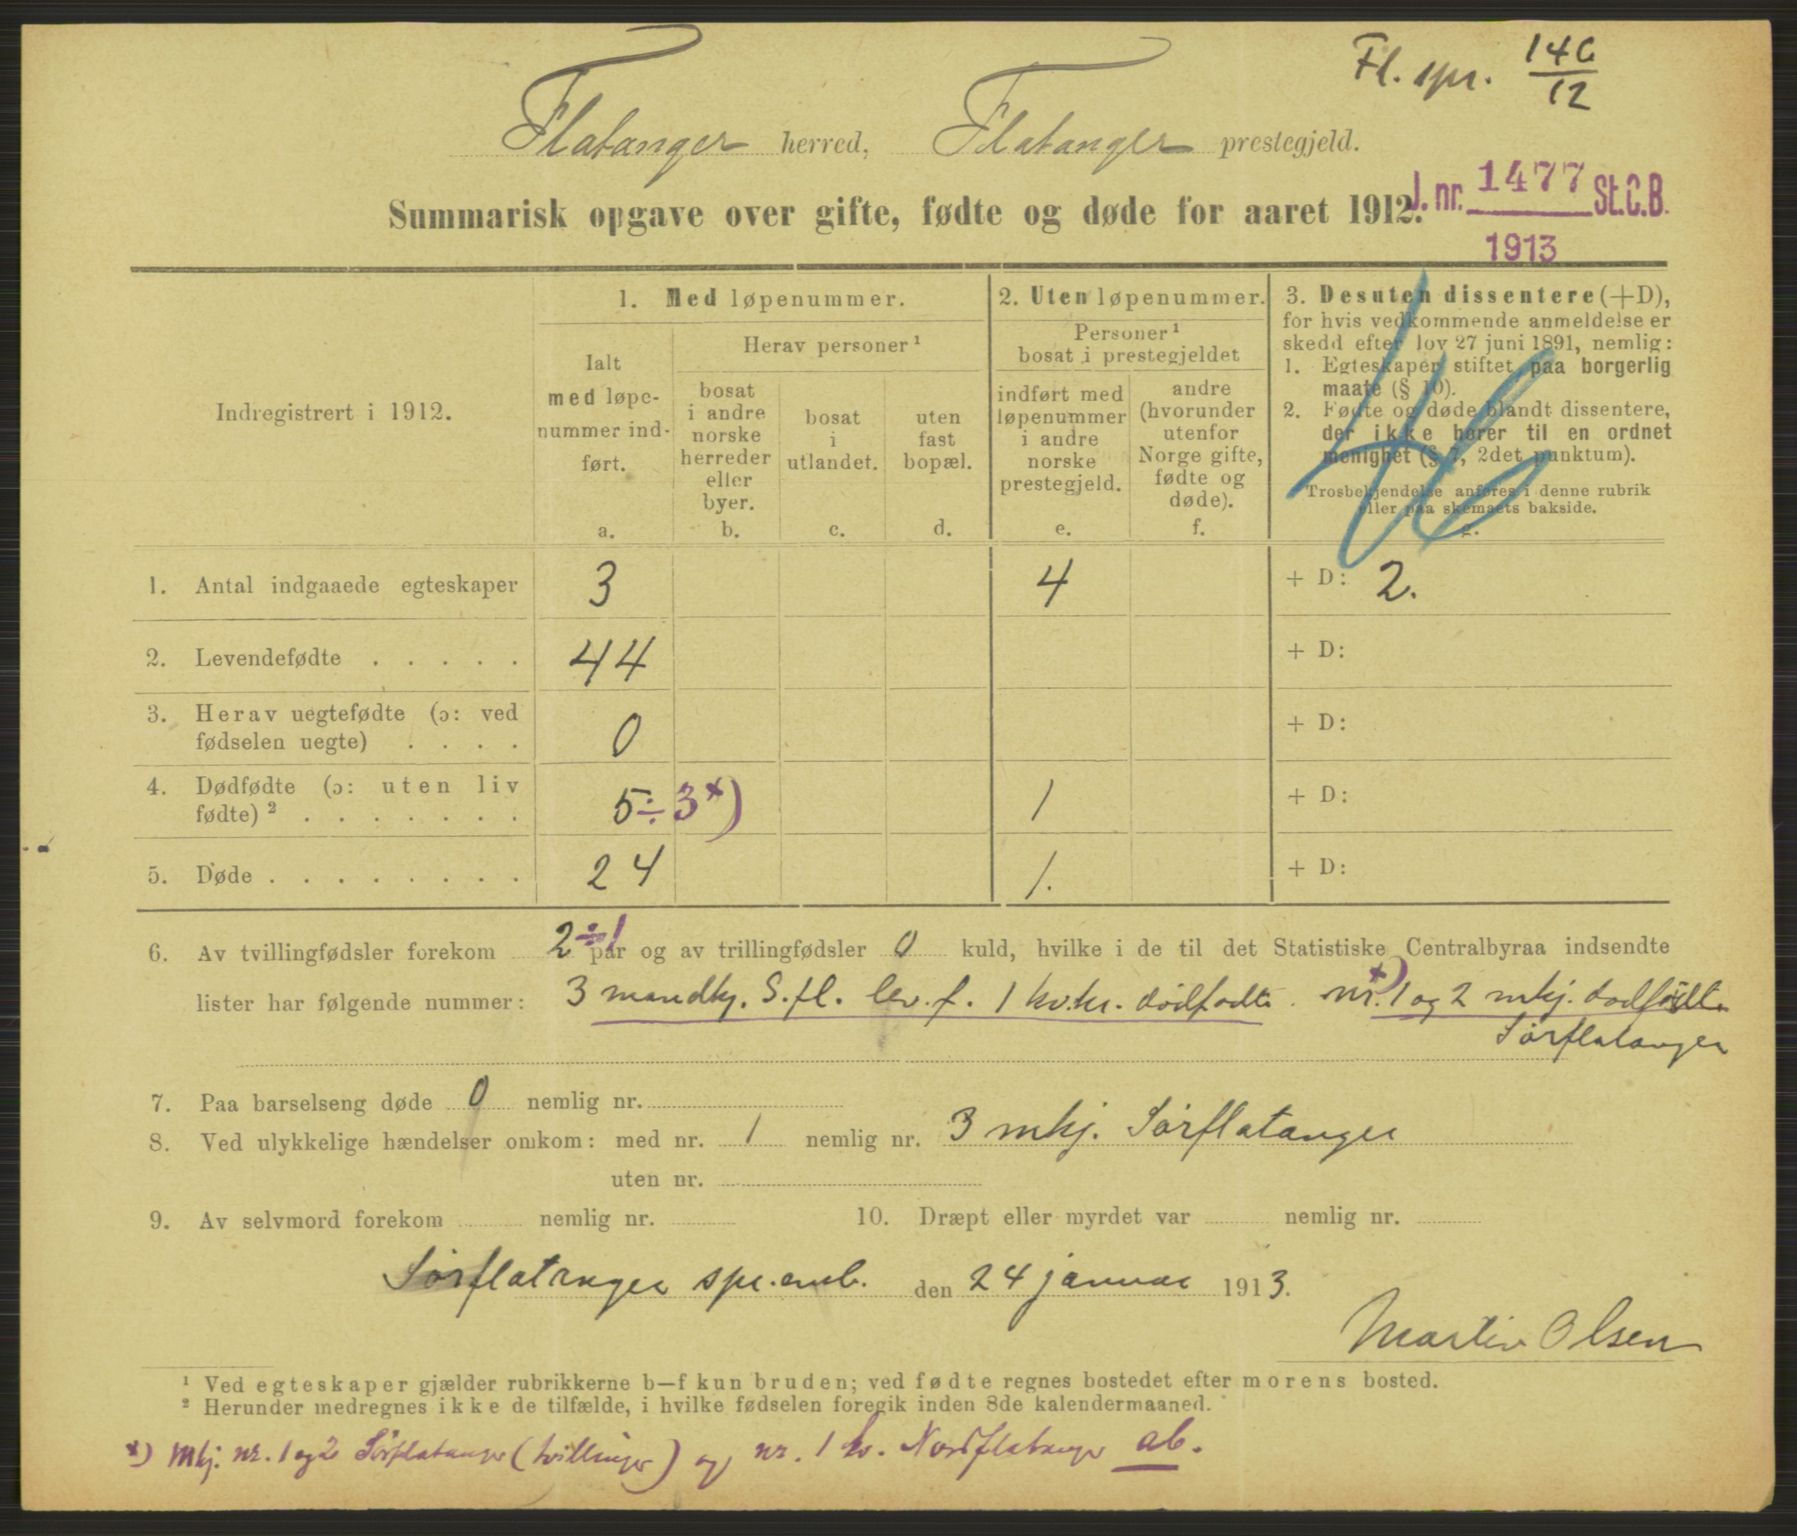 Fl. spr. 146/12
Flatanger herred, Flatanger prestegjeld.
J. nr. 1477 St.C.B.
1913
Summarisk opgave over gifte, fødte og døde for aaret 1912.
Indregistrert i 1912.
1. Med løpenummer.
Ialt
med løpe-
nummer ind-
ført.
a.
Herav personer ¹
bosat
i andre
norske
herreder
eller
byer.
b.
bosat
i
utlandet.
c.
uten
fast
bopæl.
d.
2. Uten løpenummer.
Personer ¹
bosat i prestegjeldet
indført med
løpenummer
i andre
norske
prestegjeld.
e.
andre
(hvorunder
utenfor
Norge gifte,
fødte og
døde).
f.
3. Desuten dissentere (+D),
for hvis vedkommende anmeldelse er
skedd efter lov 27 juni 1891, nemlig:
1. Egteskaper stiftet paa borgerlig
maate (§ 10).
2. Fødte og døde blandt dissentere,
der ikke hører til en ordnet
menighet (§ 7, 2det punktum).
Trosbekjendelse anføres i denne rubrik
eller paa skemaets bakside.
g.
1. Antal indgaaede egteskaper 3 4 + D: 2.
2. Levendefødte . . . . . 44 + D:
3. Herav uegtefødte (ɔ: ved
fødselen uegte) . . . . 0 + D:
4. Dødfødte (ɔ: uten liv
fødte) ² . . . . . . . 5 ÷ 3 ×) 1 + D:
5. Døde . . . . . . . . 24 1. + D:
6. Av tvillingfødsler forekom 2 ÷ 1 par og av trillingfødsler 0 kuld, hvilke i de til det Statistiske Centralbyraa indsendte
lister har følgende nummer: 3 mandkj. S.fl. lev.f. 1 kv.kr. dödfödte. ×) nr. 1 og 2 mkj. dødfødte
Sørflatanger
7. Paa barselseng døde 0 nemlig nr.
8. Ved ulykkelige hændelser omkom: med nr. 1 nemlig nr. 3 mkj. Sørflatanger
uten nr.
9. Av selvmord forekom nemlig nr. 10. Dræpt eller myrdet var nemlig nr.
Sørflatanger spr.emb. den 24 januar 1913.
Martin Olsen
¹ Ved egteskaper gjælder rubrikkerne b—f kun bruden; ved fødte regnes bostedet efter morens bosted.
² Herunder medregnes ikke de tilfælde, i hvilke fødselen foregik inden 8de kalendermaaned.
×) Mkj. nr. 1 og 2 Sørflatanger (tvillinger) og nr. 1 kv. Nordflatanger ab.